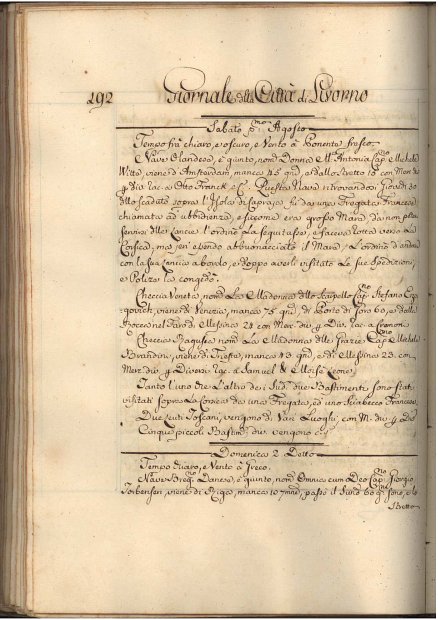 192 Giornale della Città di Livorno
Sabato p.mo Agosto
Tempo frà chiaro, e oscuro, e Vento à Ponente fresco.
Nave Olandese, è giunto, nom.a Donna M.a Antonia Cap.no Michele
Witte, viene d'Amsterdam manca 45 gni, e dallo Stretto 10 con Merc. div.
p div. rac. a Otto Franck e C. Questa Nave ritrovandosi Giovedi do
dello scaduto sopra l'Isola di Capraja fù da una Fregata Francese
chiamata ad ubbidienza, e siccome era grosso Mare, da non poter
servirsi delle Lancie l'ordinò la seguitasse, e facesse Rotta verso la
Corsica, ma essendo abbuonacciato il Mare, l'ordinò d'andare
con la sua Lancia a bordo, e doppo averli visitato le sue Spedizioni,
e Polize la congedò.
Checcia Veneta, nom.a La Madonna dello Scarpello Cap.no Stefano
viene di Venezia, manca 75 gni, di Porto di Fora 60, e dalle
Bocce nel Faro di Messina 21 con Merc. div. p Div. rac. a
Checcia Ragusea nom.a La Madonna delle Grazie Cap.no Michele
Brandini, viene di Trieste, manca 43 gni, e d. Messina 23 con
Merc. div. p Diversi rac. a Samuel & Moisè Leone.
Tanto l'uno che L'altro de i Sud.i due Bastimenti sono stati
visitati sopra La Corsica da una Fregata, ed uno Sciabecco Francese.
Due Leuti Toscani, vengono di Vari Luoghi, con M. div. p Div.
Cinque piccoli Bastim.ti div. vengono
Domenica 2 Detto
Tempo chiaro, e Vento à Greco.
Nave Breg.no Danese, è giunto, nom.o Omnia cum Deo Cap.no Giorgio
Torbensen, viene di Riga, manca 10 mne, passò il Sund 60 gi sono, e lo
Stretto